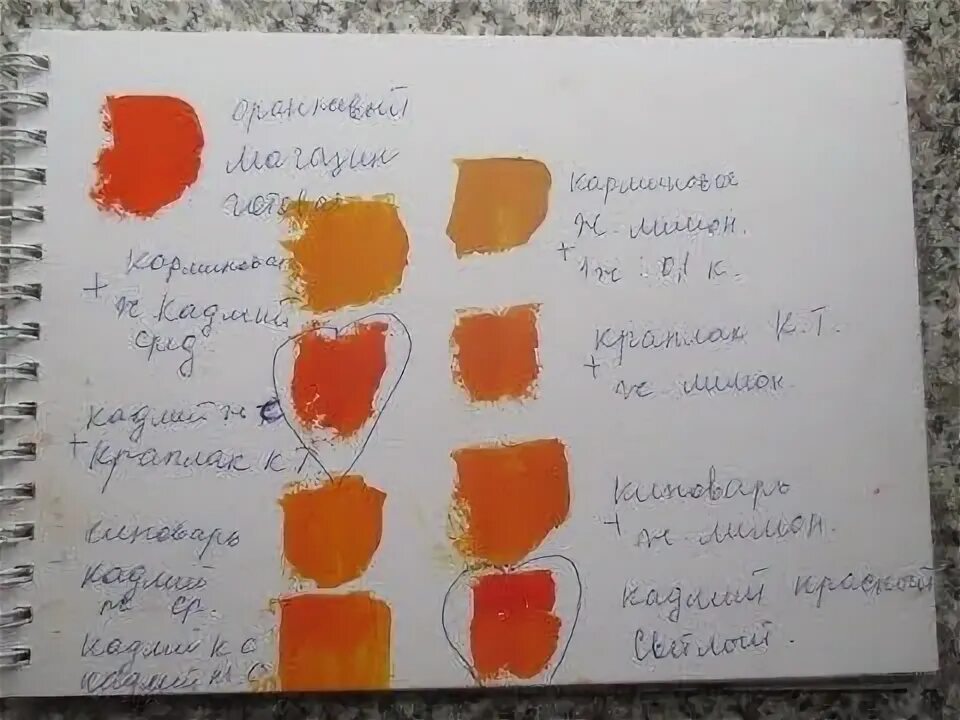 оранжевый
магазин
готовая
карминовая
+ ж кадмий
сред
кадмий ж с
+ краплак к т
киноварь
кадмий
ж ср.
кадмий к с
кадмий ж с
карминовая
ж. лимон.
+ 1ж : 0,1 к.
краплак к.т.
+ ж лимон.
киноварь
+ ж. лимон.
кадмий красный
светлый.